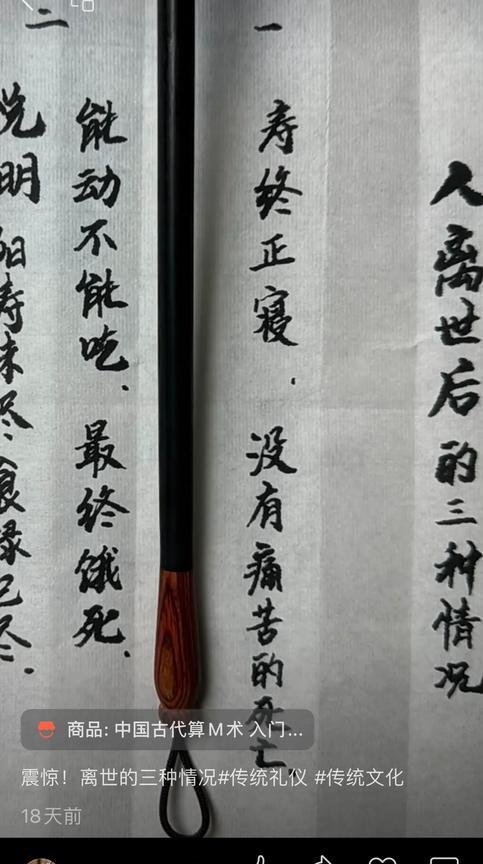 人离世后的三种情况
一
寿终正寝.
没有痛苦的死亡
二
能动不能吃.
最终饿死.
说明
阳寿未尽.食禄已尽.
商品: 中国古代算M术 入门...
震惊！离世的三种情况#传统礼仪 #传统文化
18天前